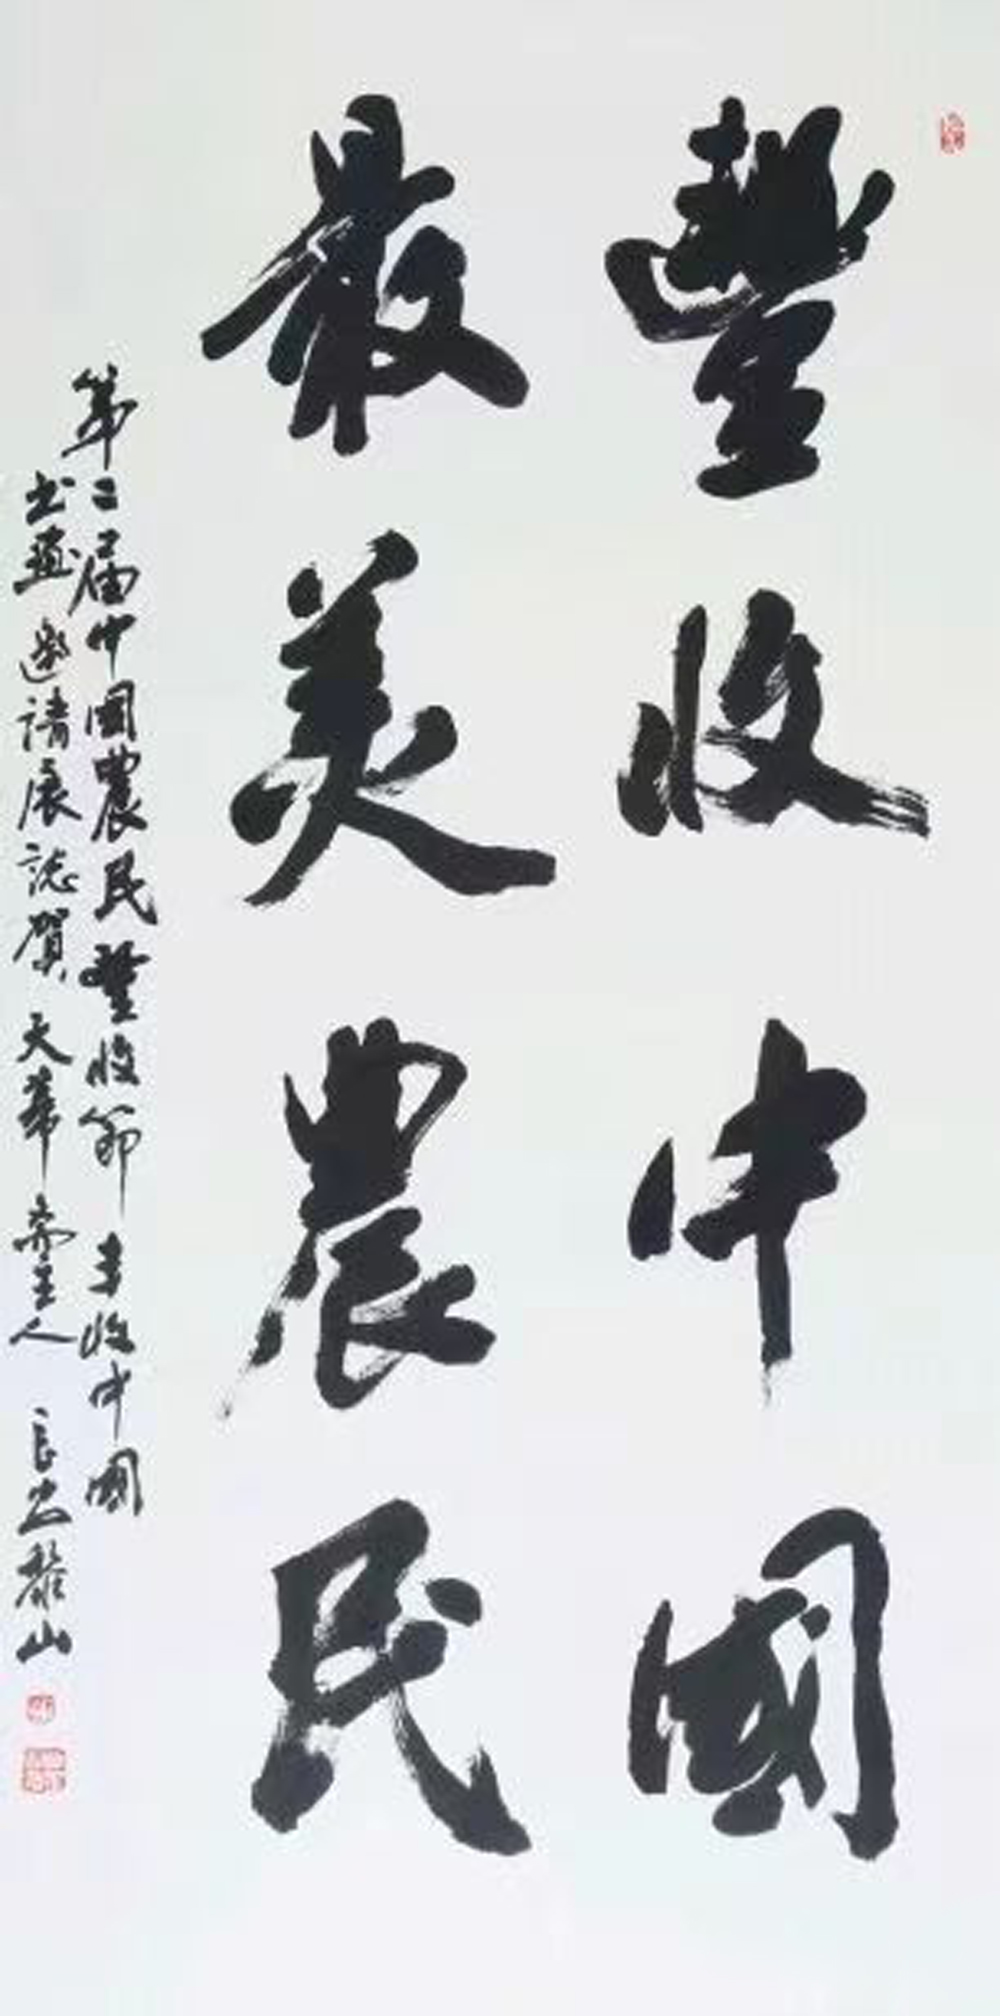 豐收中國
最美農民
第二届中國農民豐收節 丰收中國
书畫邀請展誌賀 天華齋主人 良忠 山